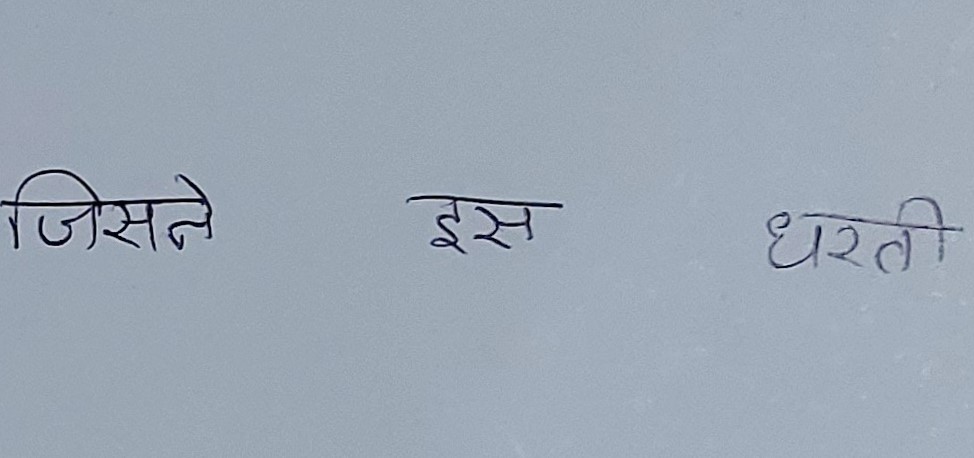 जिसने इस धरती